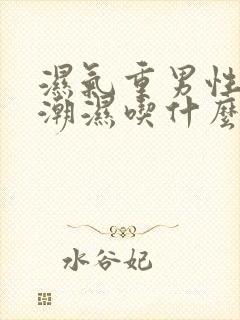 濕氣重男性
潮濕喫什麼
水谷妃